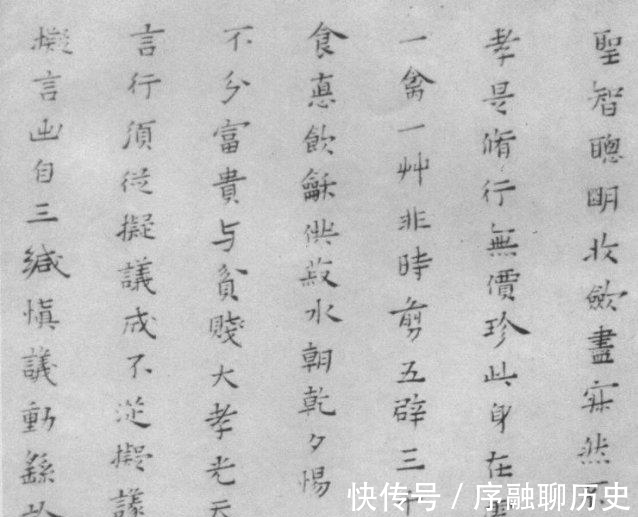 聖智聰明收斂盡寂然不
孝是脩行無價珍此身在
一禽一艸非時剪五辟三
食惪飲龢供菽水朝乾夕惕
不分富貴与貧賤大孝光天
言行須從擬議成不從擬議
擬言出自三緘慎議動繇於
快传号 / 序融聊历史